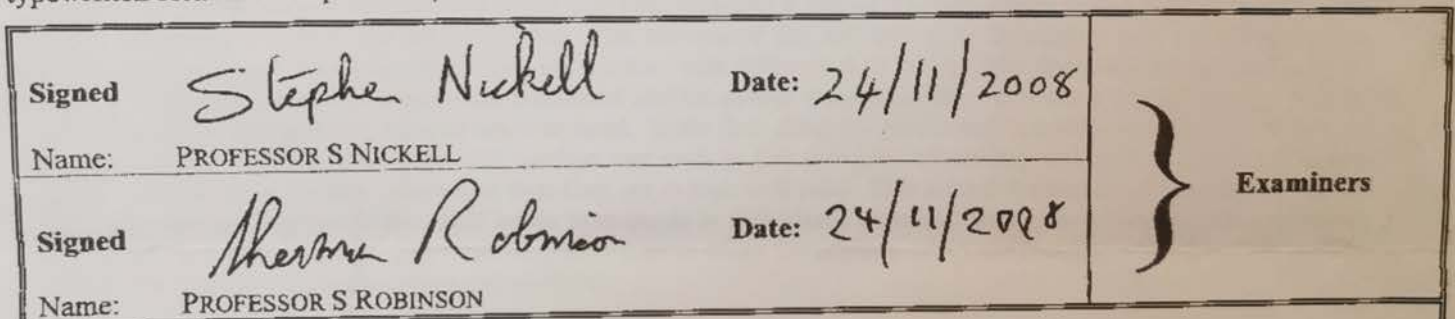 Signed Stephen Nickell Date: 24/11/2008
Name: PROFESSOR S NICKELL
Examiners
Signed Sherman Robinson Date: 24/11/2008
Name: PROFESSOR S ROBINSON